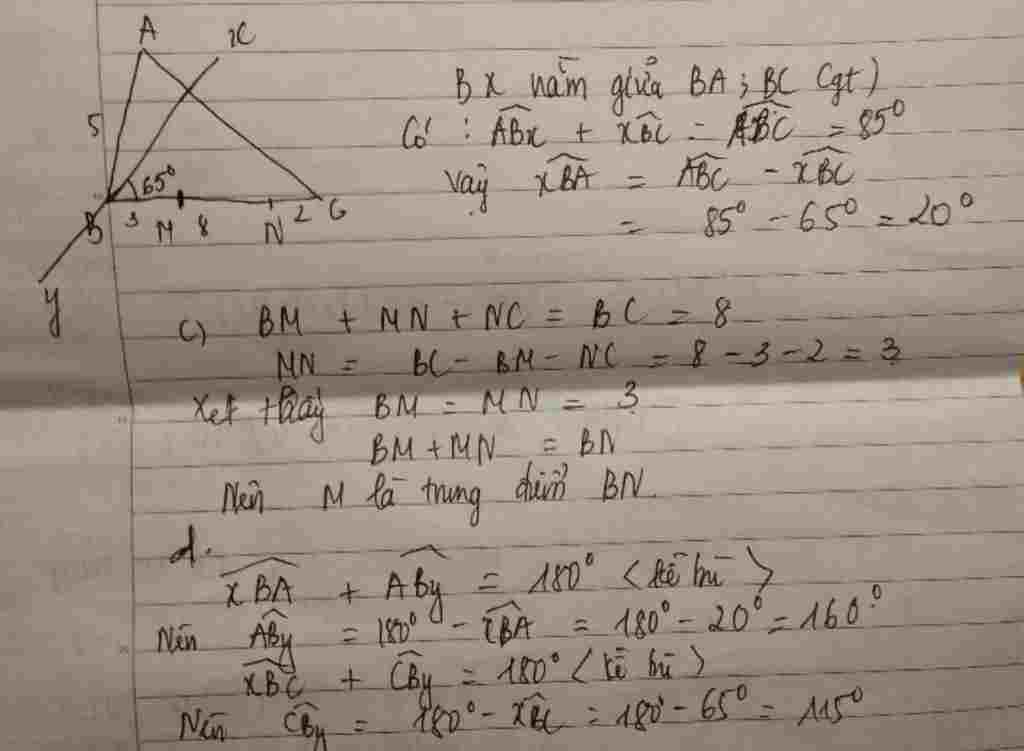 A x
Bx nằm giữa BA; BC (gt)
5
Có : ABx + xBC = ABC = 85°
65°
Vậy xBA = ABC - xBC
B 3 M 8 N 2 C
= 85° - 65° = 20°
y
c) BM + MN + NC = BC = 8
MN = BC - BM - NC = 8 - 3 - 2 = 3
Xét thấy BM = MN = 3
BM + MN = BN
Nên M là trung điểm BN.
d.
xBA + ABy = 180° < kề bù >
Nên ABy = 180° - xBA = 180° - 20° = 160°
xBC + CBy = 180° < kề bù >
Nên CBy = 180° - xBC = 180° - 65° = 115°